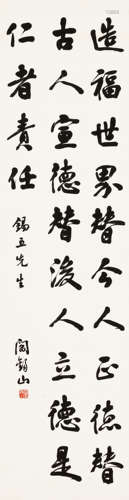 造福世界替今人正德替
古人宣德替後人立德是
仁者責任
錫五先生
閻錫山